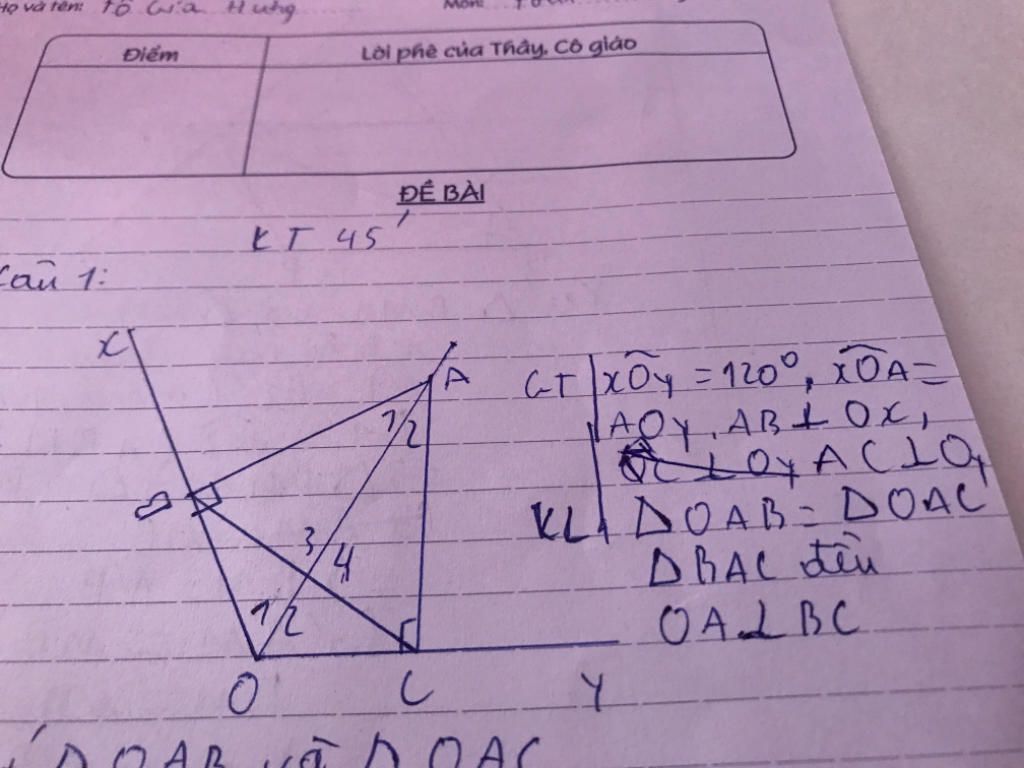 Họ và tên: Tô Gia Hưng Môn:
Điểm Lời phê của Thầy, Cô giáo
ĐỀ BÀI
KT 45'
Câu 1:
x
A
1 2
B
3 4
1 2
O C Y
GT xOy = 120°, xOA =
AOy, AB ⊥ Ox,
AC ⊥ Oy
KL ΔOAB = ΔOAC
ΔBAC đều
OA ⊥ BC
ΔOAB và ΔOAC